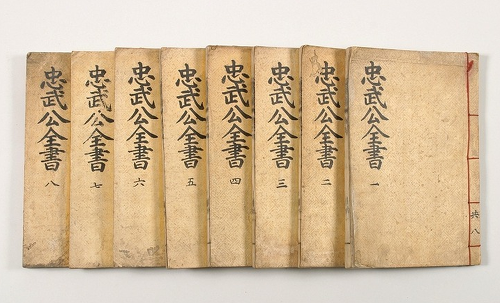 忠武公全書 一
忠武公全書 二
忠武公全書 三
忠武公全書 四
忠武公全書 五
忠武公全書 六
忠武公全書 七
忠武公全書 八
共八